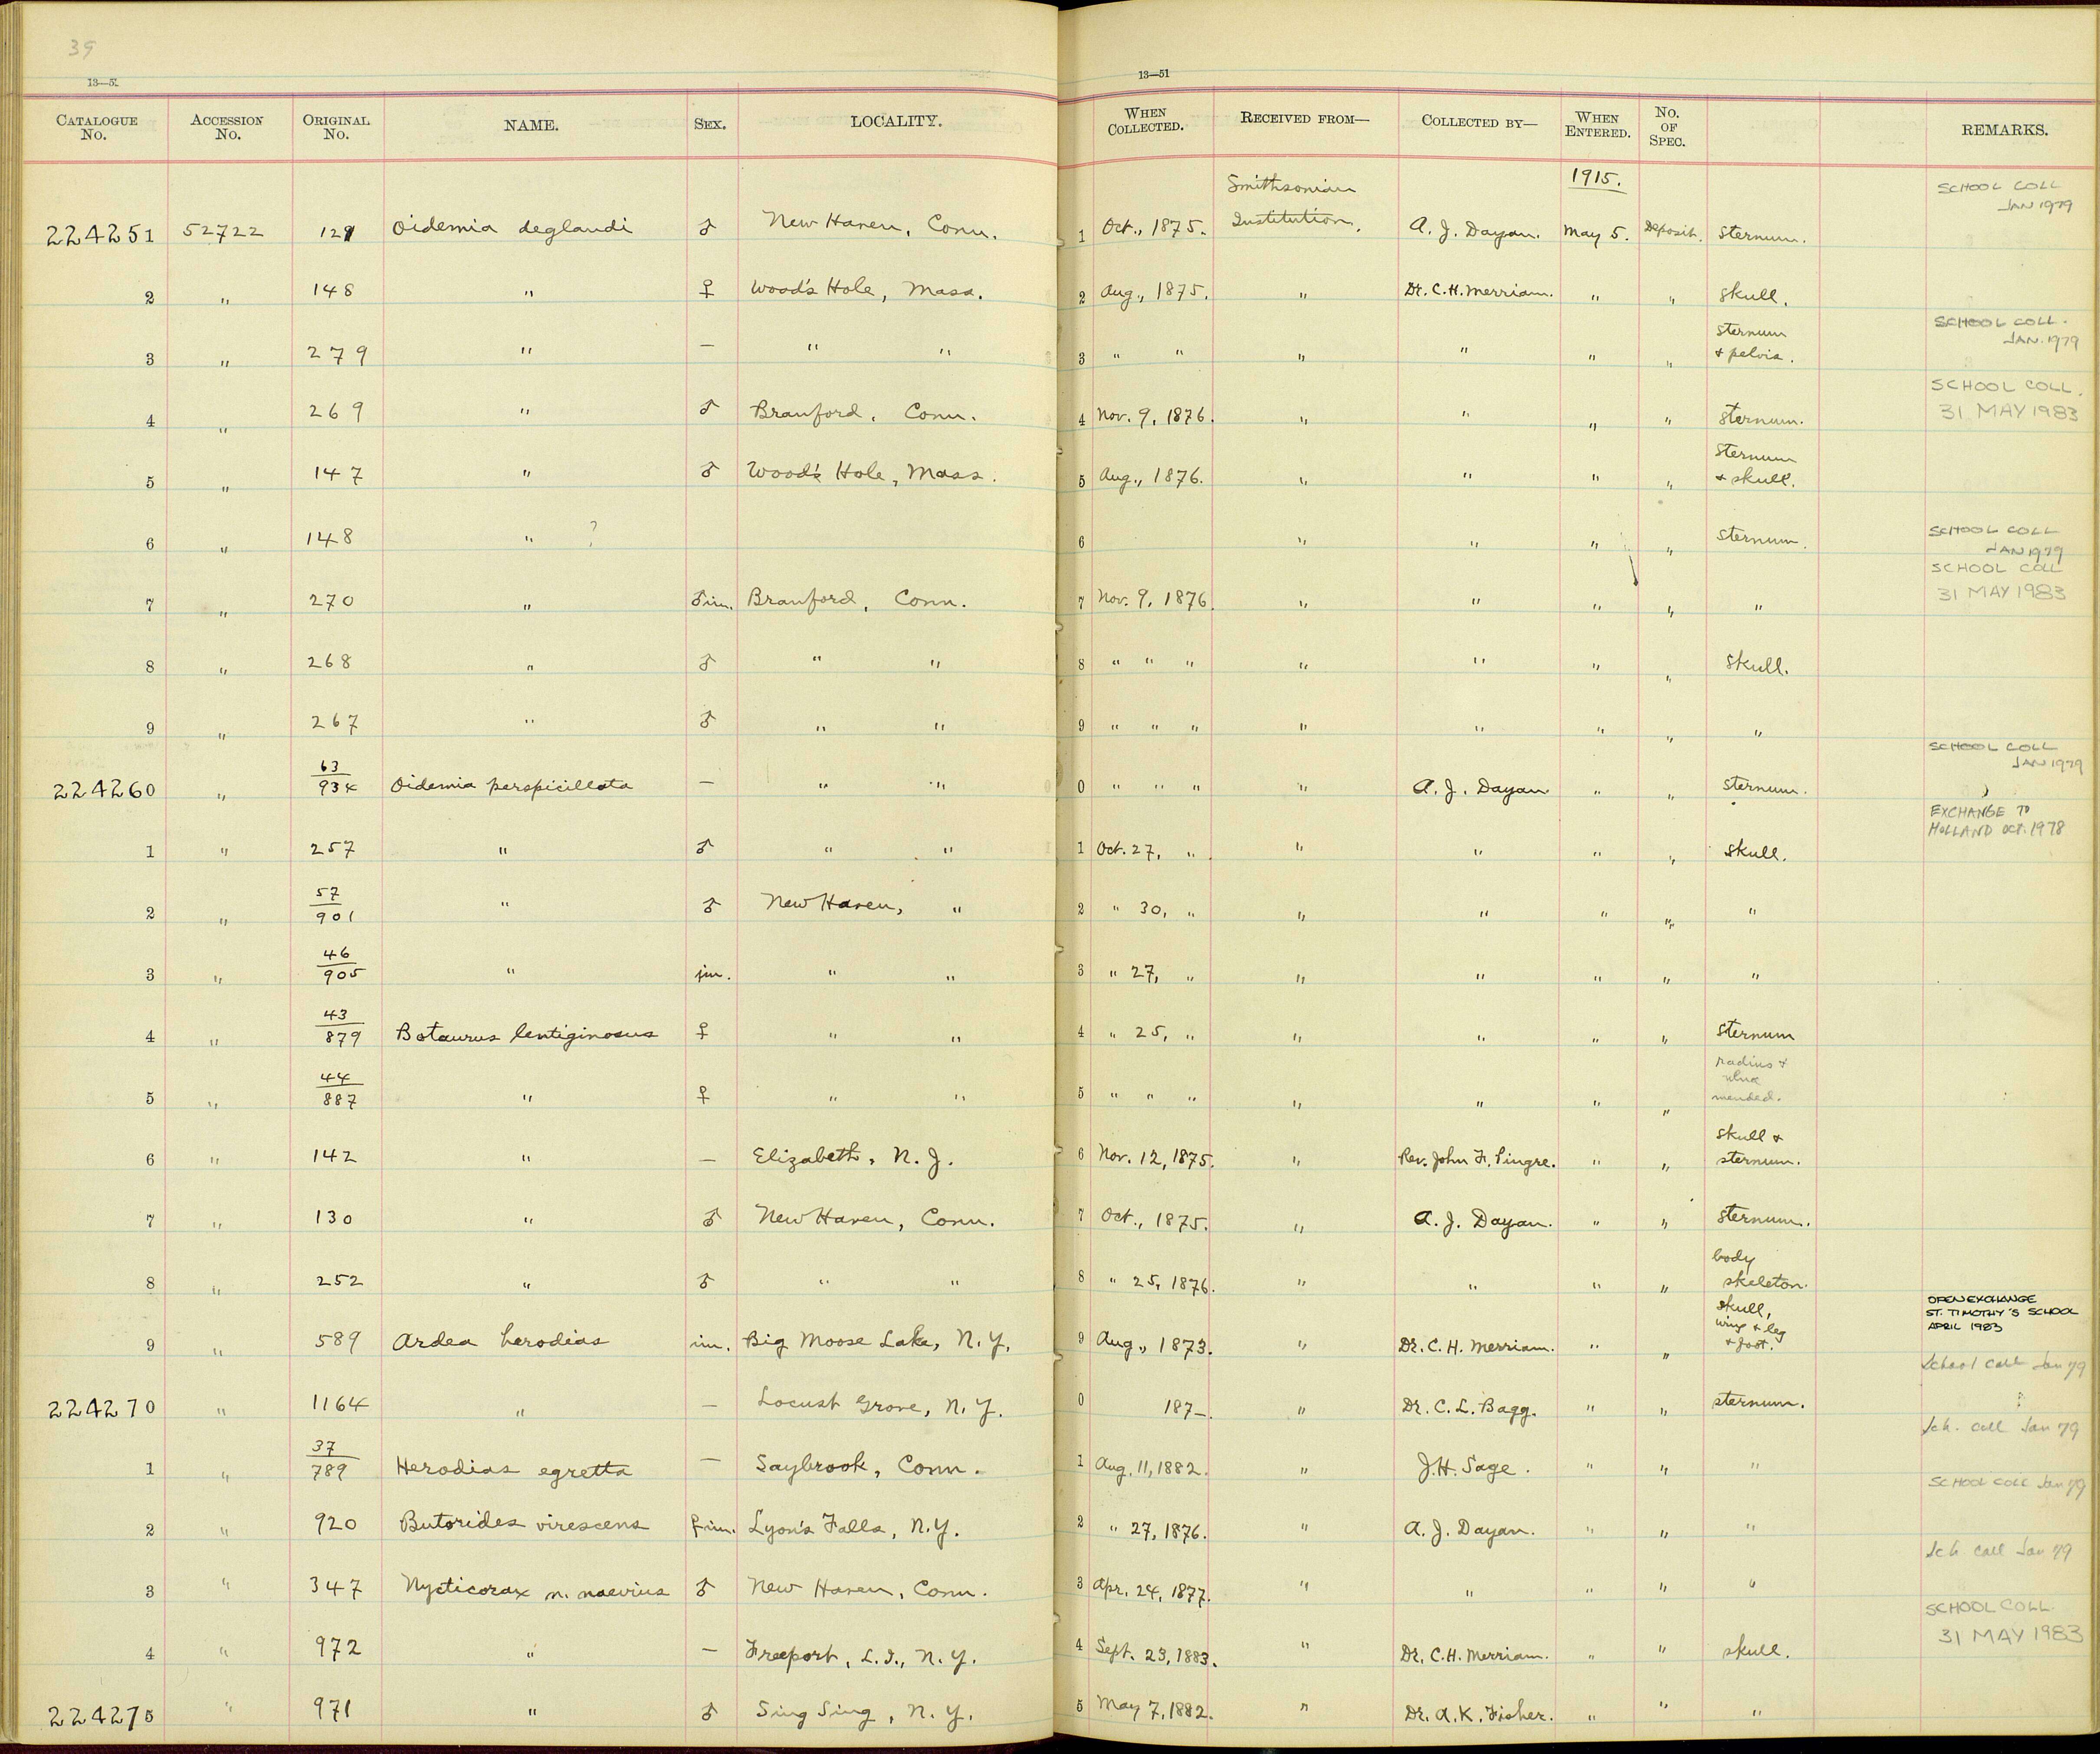 39
13—5
13—51
CATALOGUE No. ACCESSION No. ORIGINAL No. NAME. SEX. LOCALITY. WHEN COLLECTED. RECEIVED FROM— COLLECTED BY— WHEN ENTERED. No. OF SPEC. REMARKS.
224251 52722 129 Oidemia deglandi ♂ New Haven, Conn. 1 Oct., 1875. Smithsonian Institution. A. J. Dayan. 1915. May 5. Deposit. sternum. SCHOOL COLL JAN 1979
2 " 148 " ♀ Wood's Hole, Mass. 2 Aug., 1875. " Dr. C. H. Merriam. " " skull.
3 " 279 " — " " 3 " " " " " " sternum & pelvis. SCHOOL COLL. JAN. 1979
4 " 269 " ♂ Branford, Conn. 4 Nov. 9, 1876. " " " " sternum. SCHOOL COLL. 31 MAY 1983
5 " 147 " ♂ Wood's Hole, Mass. 5 Aug., 1876. " " " " sternum & skull.
6 " 148 " ? 6 " " " " sternum. SCHOOL COLL JAN 1979
7 " 270 " ♂ im. Branford, Conn. 7 Nov. 9, 1876. " " " " " SCHOOL COLL 31 MAY 1983
8 " 268 " ♂ " " 8 " " " " " " " skull.
9 " 267 " ♂ " " 9 " " " " " " " "
224260 " 63/934 Oidemia perspicillata — " " 0 " " " " A. J. Dayan " " sternum. SCHOOL COLL JAN 1979
1 " 257 " ♂ " " 1 Oct. 27, " " " " " skull. EXCHANGE TO HOLLAND OCT. 1978
2 " 57/901 " ♂ New Haven, " 2 " 30, " " " " " "
3 " 46/905 " im. " " 3 " 27, " " " " " "
4 " 43/879 Botaurus lentiginosus ♀ " " 4 " 25, " " " " " sternum
5 " 44/887 " ♀ " " 5 " " " " " " " radius & ulna mended.
6 " 142 " — Elizabeth, N. J. 6 Nov. 12, 1875. " Rev. John F. Pingre. " " skull & sternum.
7 " 130 " ♂ New Haven, Conn. 7 Oct., 1875. " A. J. Dayan. " " sternum.
8 " 252 " ♂ " " 8 " 25, 1876. " " " " body skeleton.
9 " 589 Ardea herodias im. Big Moose Lake, N. Y. 9 Aug., 1873. " Dr. C. H. Merriam. " " skull, wing & leg & foot. OPEN EXCHANGE ST. TIMOTHY'S SCHOOL APRIL 1983
224270 " 1164 " — Locust Grove, N. Y. 0 187–. " Dr. C. L. Bagg. " " sternum. School Coll Jan 79
1 " 37/789 Herodias egretta — Saybrook, Conn. 1 Aug. 11, 1882. " J. H. Sage. " " " Sch. Coll Jan 79
2 " 920 Butorides virescens ♀ im. Lyon's Falls, N. Y. 2 " 27, 1876. " A. J. Dayan. " " " SCHOOL COLL Jan 79
3 " 347 Nycticorax n. naevius ♂ New Haven, Conn. 3 Apr. 24, 1877. " " " " " Sch Coll Jan 79
4 " 972 " — Freeport, L. I., N. Y. 4 Sept. 23, 1883. " Dr. C. H. Merriam. " " skull. SCHOOL COLL. 31 MAY 1983
224275 " 971 " ♂ Sing Sing, N. Y. 5 May 7, 1882. " Dr. A. K. Fisher. " " "